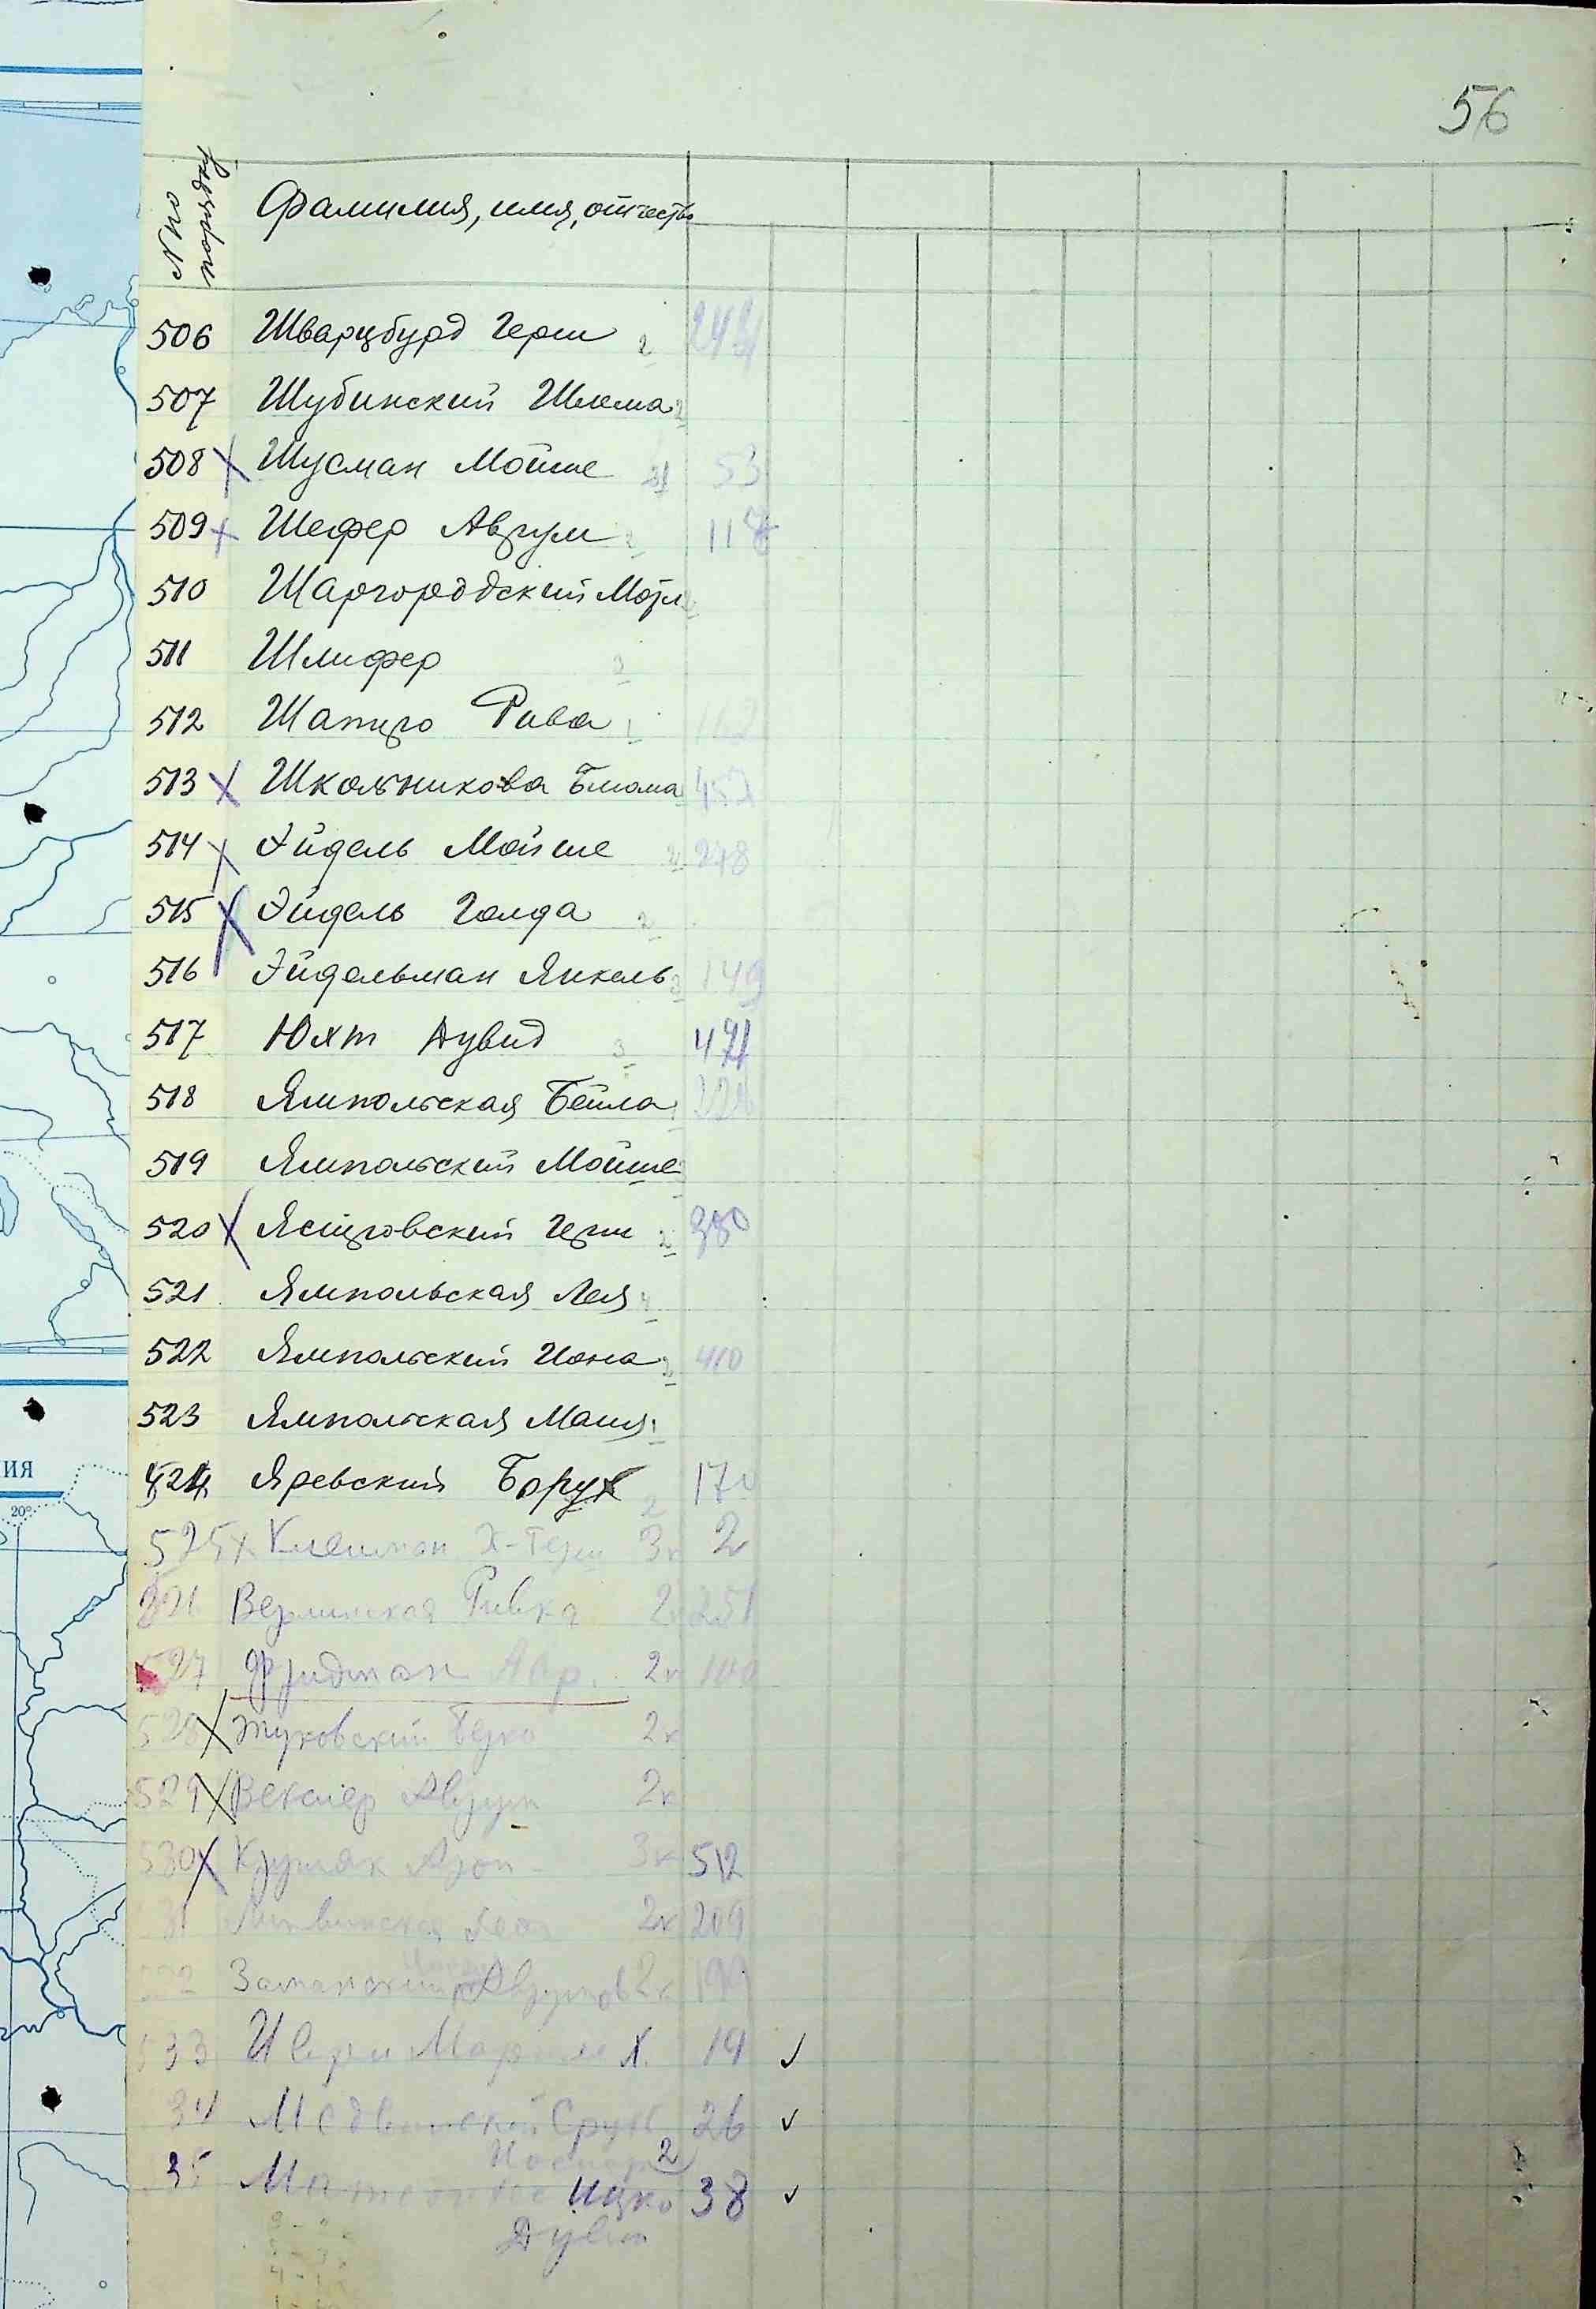 56
№ по порядку
Фамилия, имя, отчество
506 Шварцбурд Герш 2
507 Шубинский Шлема 2
508 X Шусман Мойше 53
509 X Шефер Аврум 2 117
510 Шаргороддский Мотл
511 Шлифер 3
512 Шапиро Рива 1
513 X Школьникова Блюма 452
514 X Эйдель Мойше 2 278
515 X Эйдель Голда 2
516 Эйдельман Янкель 3 149
517 Юхт Дувид 3 471
518 Ямпольская Бейла
519 Ямпольский Мойше
520 X Ястровский Герш 2 380
521 Ямпольская Лея 4
522 Ямпольский Иона 2 410
523 Ямпольская Маня 1
524 Яревский Борух 2 170
525 X Клейман Х-Герш 3к 2
526 Верлинская Ривка 2к 251
527 Фридман Авр. 2к 100
528 X Жуковский Берко 2к
529 X Векслер Аврум 2к
530 X Арон 3к 512
31 Литвинская 2к 209
Аврумов 2к 199
533 Х. 19 ✓
34 Медвинский Срул 26 ✓
35 2
Ицко 38 ✓
Дувид
ИЯ
20°